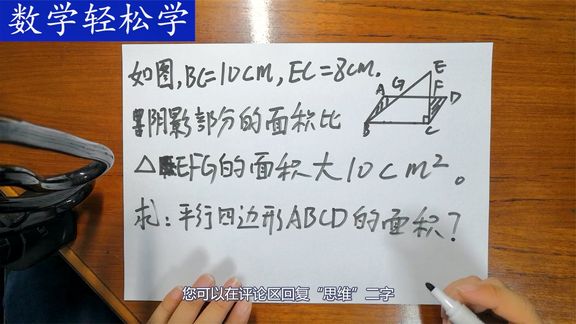 数学轻松学
如图,BC=10cm,EC=8cm.
阴影部分的面积比
△EFG的面积大10cm²。
求:平行四边形ABCD的面积?
E
A G F D
B C
您可以在评论区回复“思维”二字